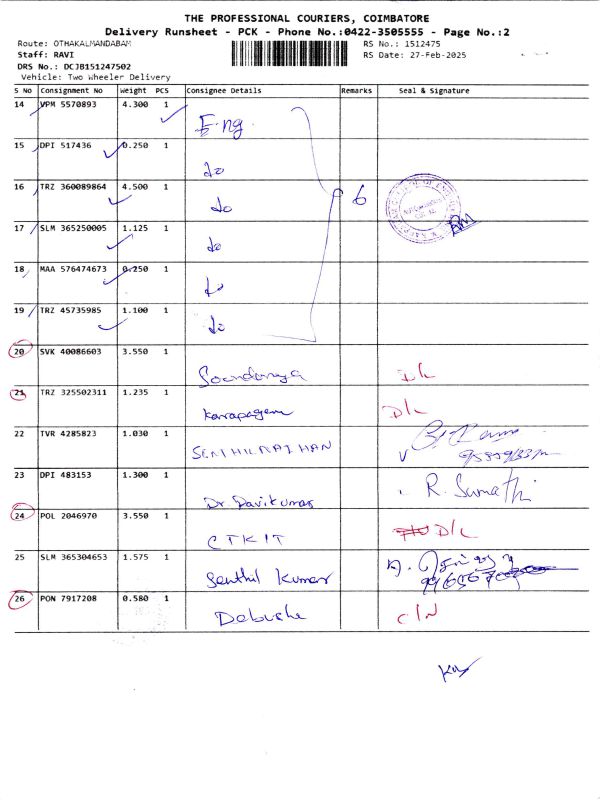 THE PROFESSIONAL COURIERS, COIMBATORE
Delivery Runsheet - PCK - Phone No.:0422-3505555 - Page No.:2
Route: OTHAKALMANDABAM RS No.: 1512475
Staff: RAVI RS Date: 27-Feb-2025
DRS No.: DCJB151247502
Vehicle: Two Wheeler Delivery
S No Consignment No Weight PCS Consignee Details Remarks Seal & Signature
14 VPM 5570893 4.300 1 Eng.
15 DPI 517436 0.250 1 do
16 TRZ 360089864 4.500 1 do 6
17 SLM 365250005 1.125 1 do
18 MAA 576474673 0.250 1 do
19 TRZ 45735985 1.100 1 do
20 SVK 40086603 3.550 1 Soundarya D/L
21 TRZ 325502311 1.235 1 Karapagam D/L
22 TVR 4285823 1.030 1 SENTHILNATHAN
23 DPI 483153 1.300 1 Dr Ravikumar R. Sumathi
24 POL 2046970 3.550 1 CTKIT D/L
25 SLM 365304653 1.575 1 Senthil Kumar
26 PON 7917208 0.580 1 C/N